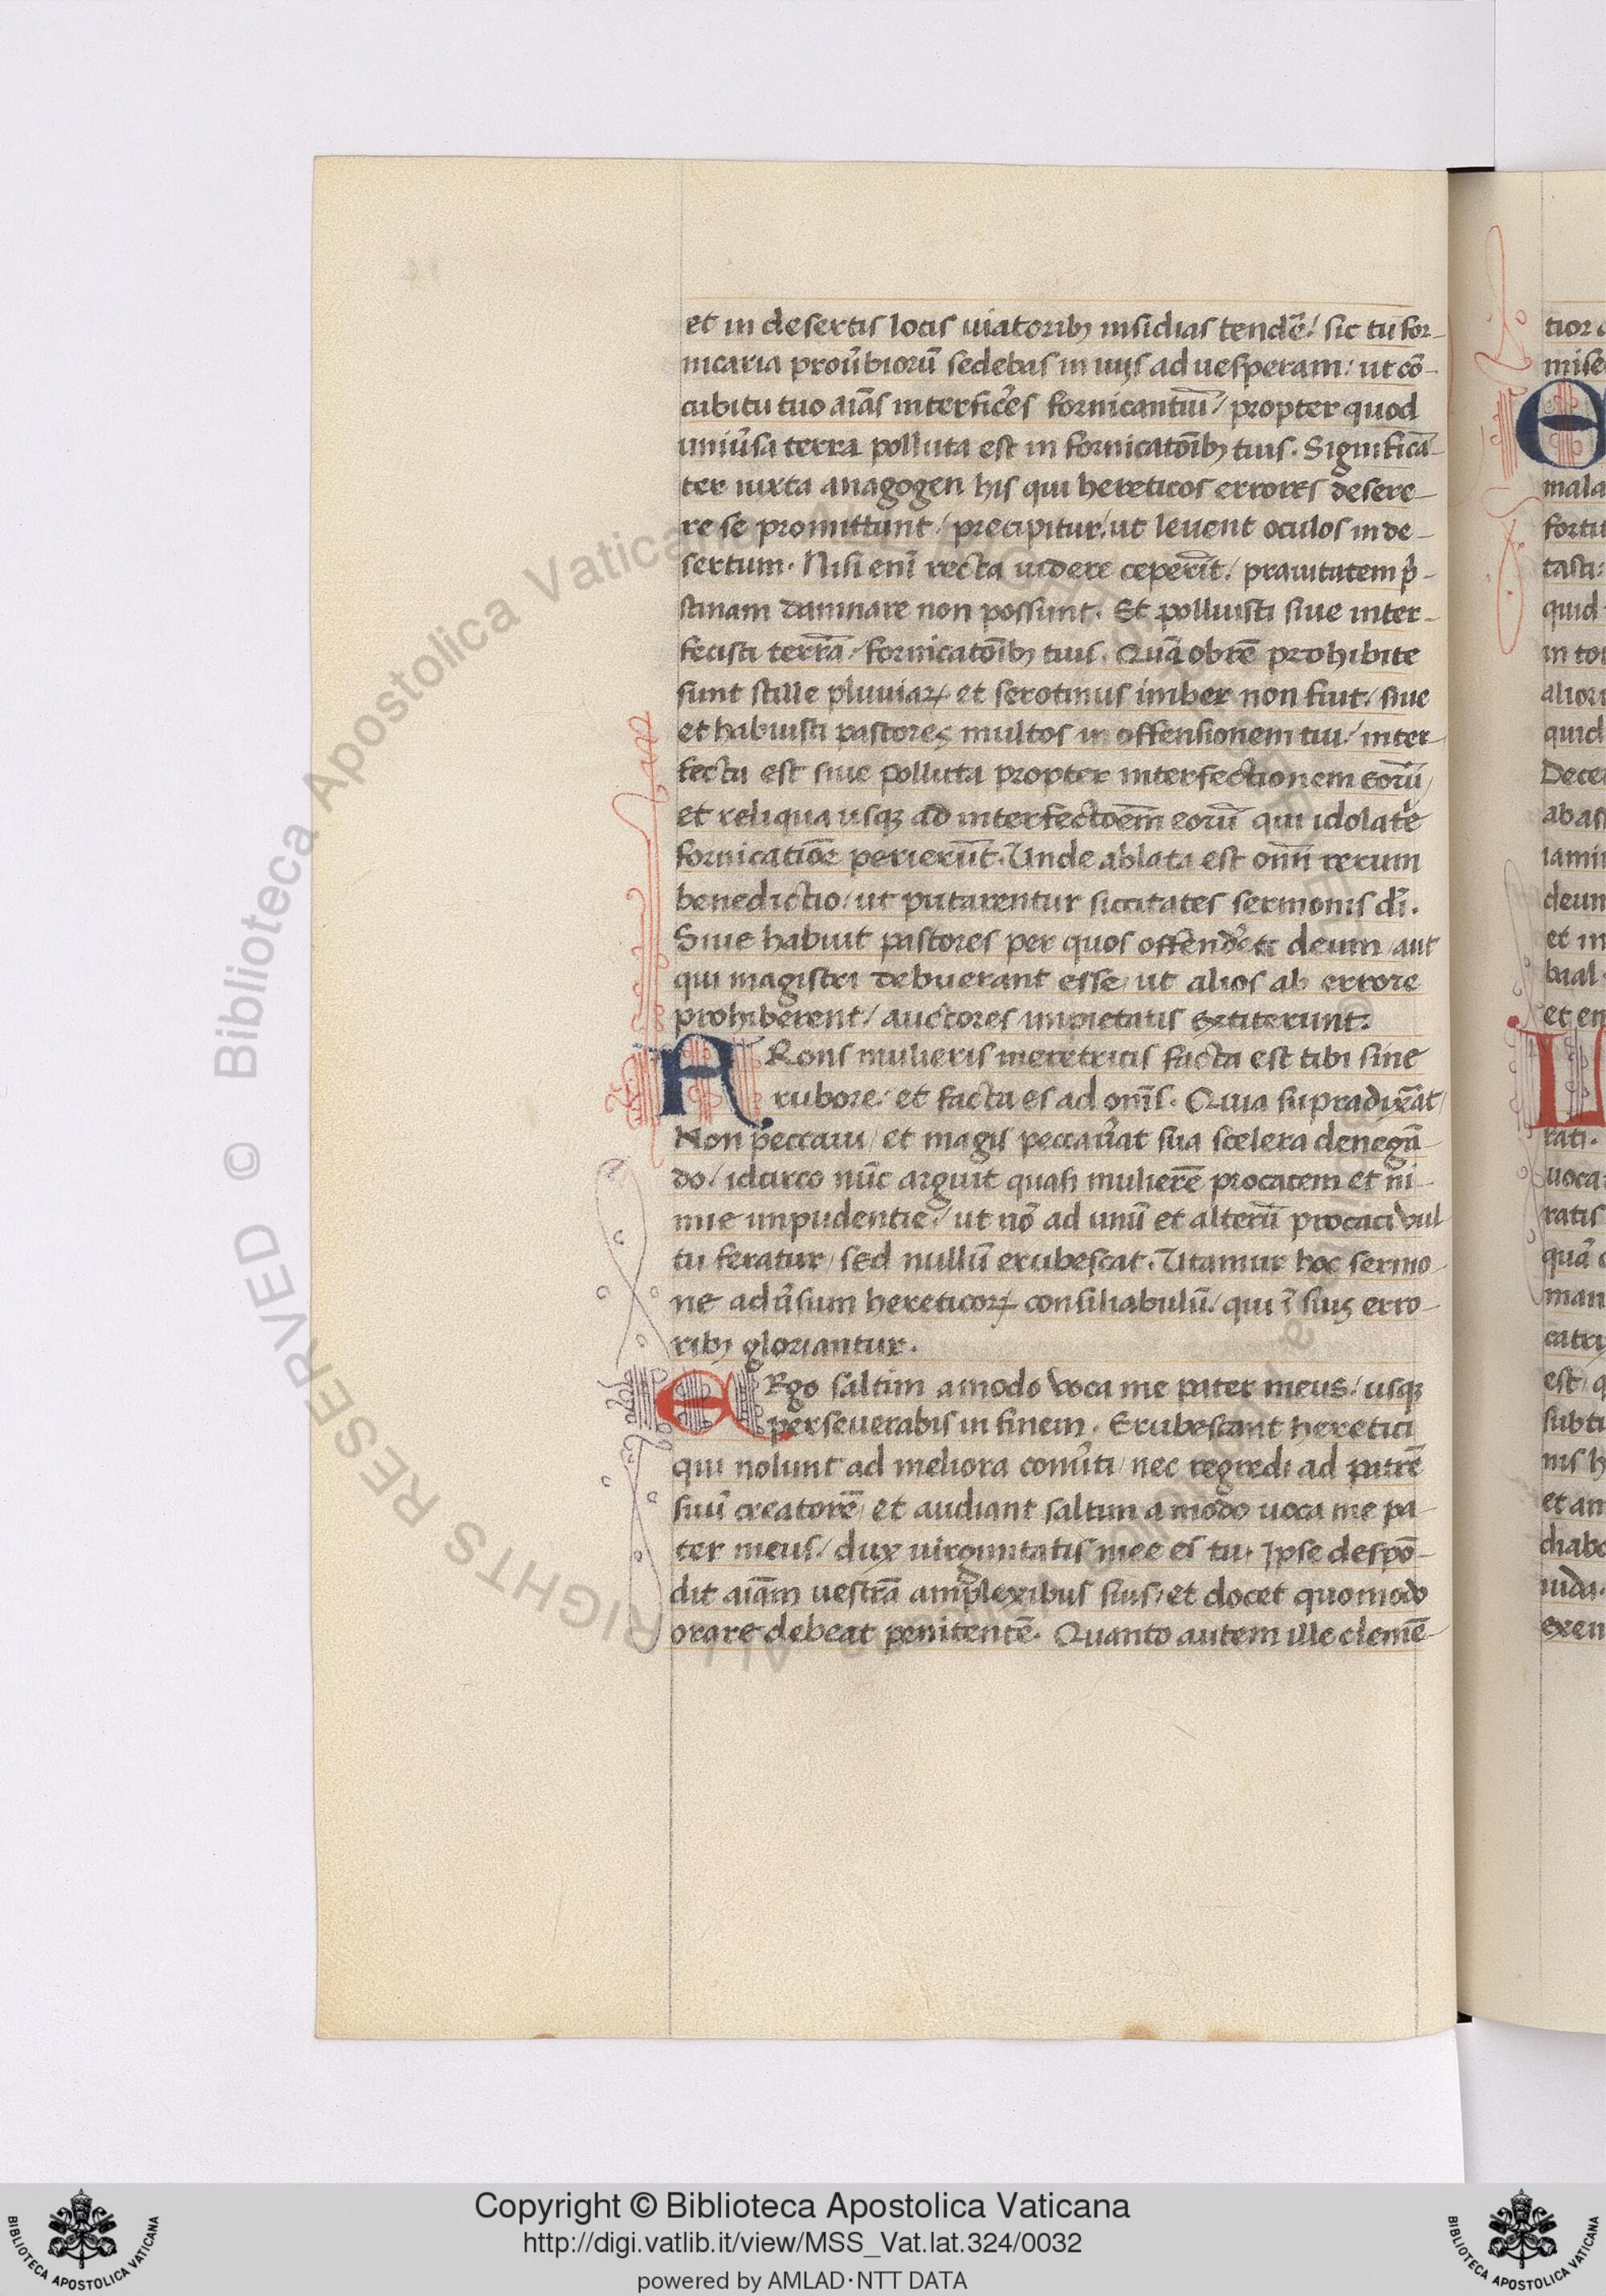 et in desertis locis uiatoribꝫ insidias tendē / sic tu for-
nicaria prou̅biorū sedebas in uijs ad uesperam / ut cō-
cubitu tuo aiās interfic̉es fornicantiū / propter quod
uniu̅sa terra polluta est in fornicatōibꝫ tuis. Significā-
ter iuxta anagogen his qui hereticos errores desere-
re se promittunt / precipitur / ut leuent oculos in de-
sertum. Nisi enī recta uidere ceperīt / prauitatem p̉-
stinam damnare non possunt. Et polluisti siue inter-
fecisti terrā / fornicatōibꝫ tuis. Quā obrē prohibite
sunt stille pluuiaꝝ et serotinus imber non fiut / siue
et habuisti pastores multos in offensionem tui / inter-
fecta est siue polluta propter interfectionem eorū /
et reliqua usqꝫ ad interfectōem eorū qui idolatē
fornicatiōe perierūt. Unde ablata est om̅i rerum
benedictio / ut putarentur siccitates sermonis dī.
Siue habuit pastores per quos offend̉et deum / aut
qui magistri debuerant esse / ut alios ab errore
prohiberent / auctores impietatis extiterunt.
FRons mulieris meretricis facta est tibi sine
rubore / et facta es ad om̅s. Quia supradixāt /
Non peccaui / et magis peccau̅at sua scelera denegā-
do / idcirco nūc arguit quasi mulierē procacem et ni-
mie inpudentie / ut nō ad unū et alterū procaci vul
tu feratur / sed nullū erubescat. Utamur hoc sermo-
ne adu̅sum hereticoꝝ consiliabulū / qui ī suis erro-
ribꝫ gloriantur.
ERgo saltim amodo voca me pater meus / usqꝫ
perseuerabis in finem. Erubescant heretici
qui nolunt ad meliora conu̅ti / nec regredi ad patrē
suū creatorē / et audiant saltim a modo uoca me pa-
ter meus / dux uirginitatis mee es tu. Ipse despō-
dit aiām uestrā amplexibus suis / et docet quomodo
orare debeat penitentē. Quanto autem ille clemē-
Copyright © Biblioteca Apostolica Vaticana
http://digi.vatlib.it/view/MSS_Vat.lat.324/0032
powered by AMLAD·NTT DATA
BIBLIOTECA APOSTOLICA VATICANA
BIBLIOTECA APOSTOLICA VATICANA